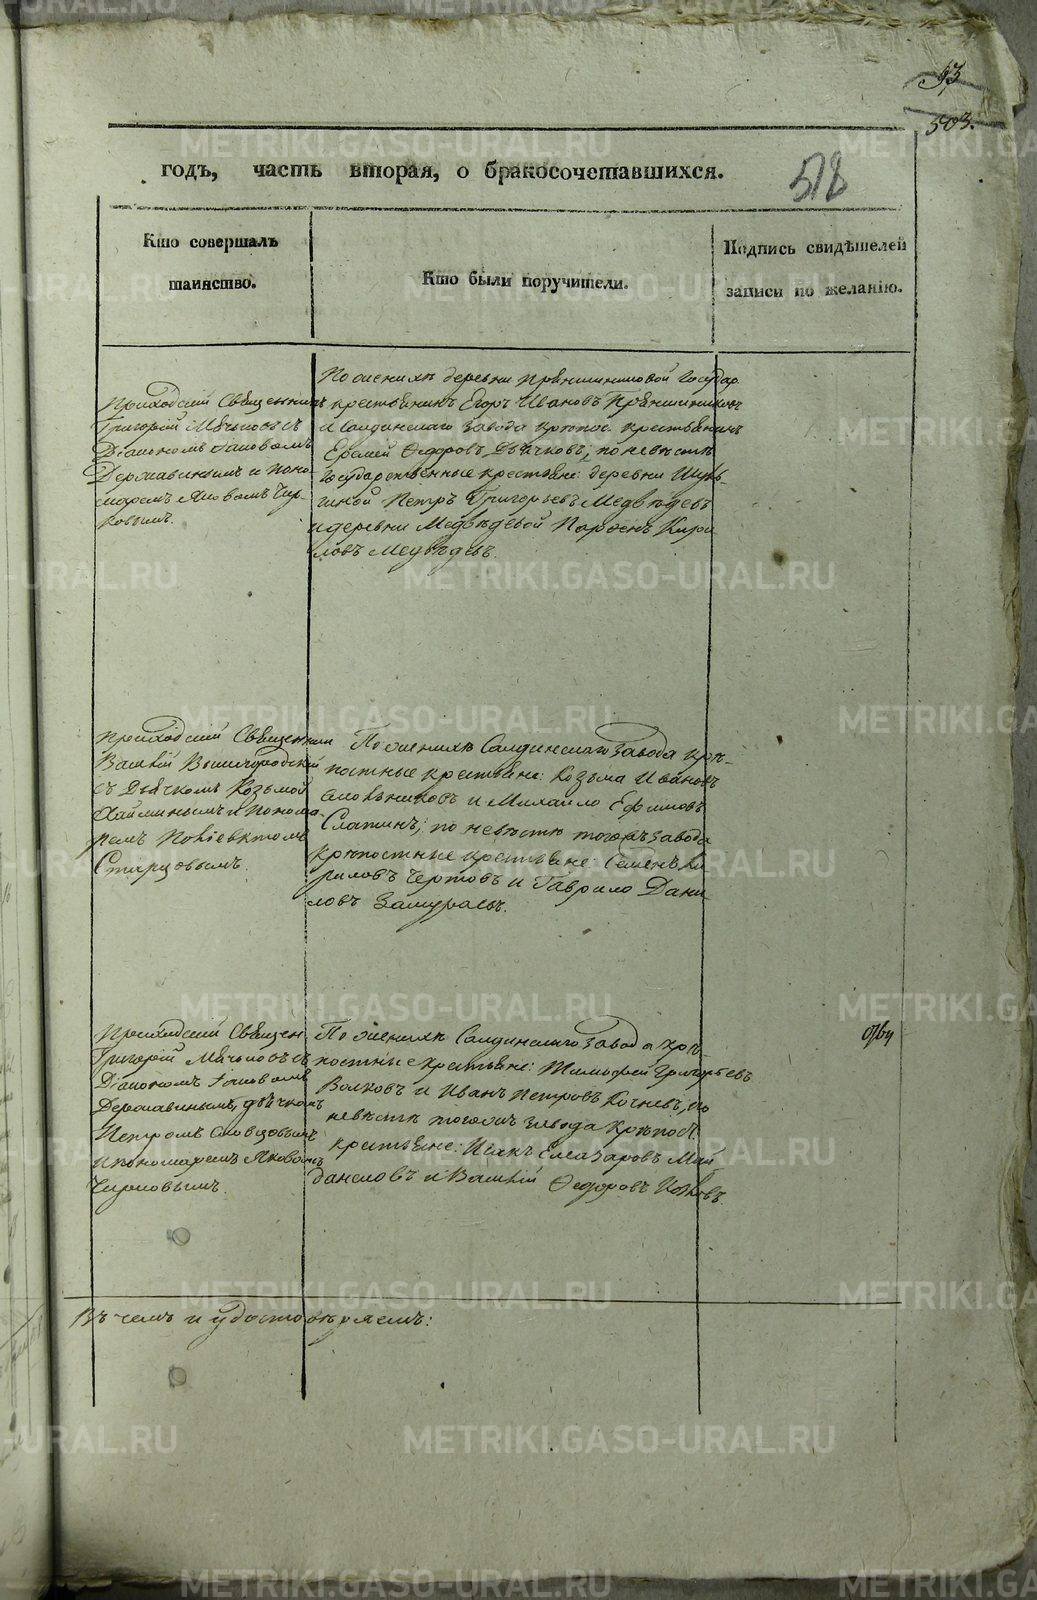 93
503.
518
годъ, часть вторая, о бракосочетавшихся.
Кто совершалъ
таинство.
Кто были поручители.
Подпись свидѣтелей
записи по желанію.
Приходскій Священникъ
Григорій Мѣчьковъ съ
Діакономъ Іаковомъ
Державинымъ и поно-
маремъ Яковомъ Чир-
ковымъ.
По женихѣ деревни Прянишниковой Государ.
крестьянинъ Егоръ Ивановъ Прянишниковъ
и Салдинскаго завода крѣпос. крестьянинъ
Еремѣй Ѳедоровъ Дьячковъ; по невѣстѣ
Государственные крестьяне: деревни
Петръ Григорьевъ Медвѣдевъ
и деревни Медвѣдевой Парѳенъ Кири
ловъ Медвѣдевъ.
Приходскій Священникъ
Василій Вышегородскій
съ Дьячкомъ Козьмой
и Понома
ремъ Поліевктомъ
Старцовымъ.
По женихѣ Салдинскаго завода крѣ-
постные крестьяне: Козьма Ивановъ
и Михайло Ефимовъ
по невѣстѣ тогожъ завода
крѣпостные крестьяне Семенъ Ки
риловъ Чертовъ и Гаврило Дани
ловъ Замураевъ.
Приходскій Священ.
Григорій Мѣчьковъ съ
Діакономъ Іаковомъ
Державинымъ, дьячкомъ
Петромъ Словцовымъ
и пономаремъ Яковомъ
Чирковымъ.
По женихѣ Салдинскаго завода крѣ-
постные крестьяне: Тимофей Григорьевъ
Волковъ и Иванъ Петровъ Кочневъ, по
невѣстѣ тогожъ завода крѣпост.
крестьяне: Исакъ Елизаровъ Май
дановъ и Василій Ѳедоровъ
Въ чемъ и удостовѣряемъ:
METRIKI.GASO-URAL.RU